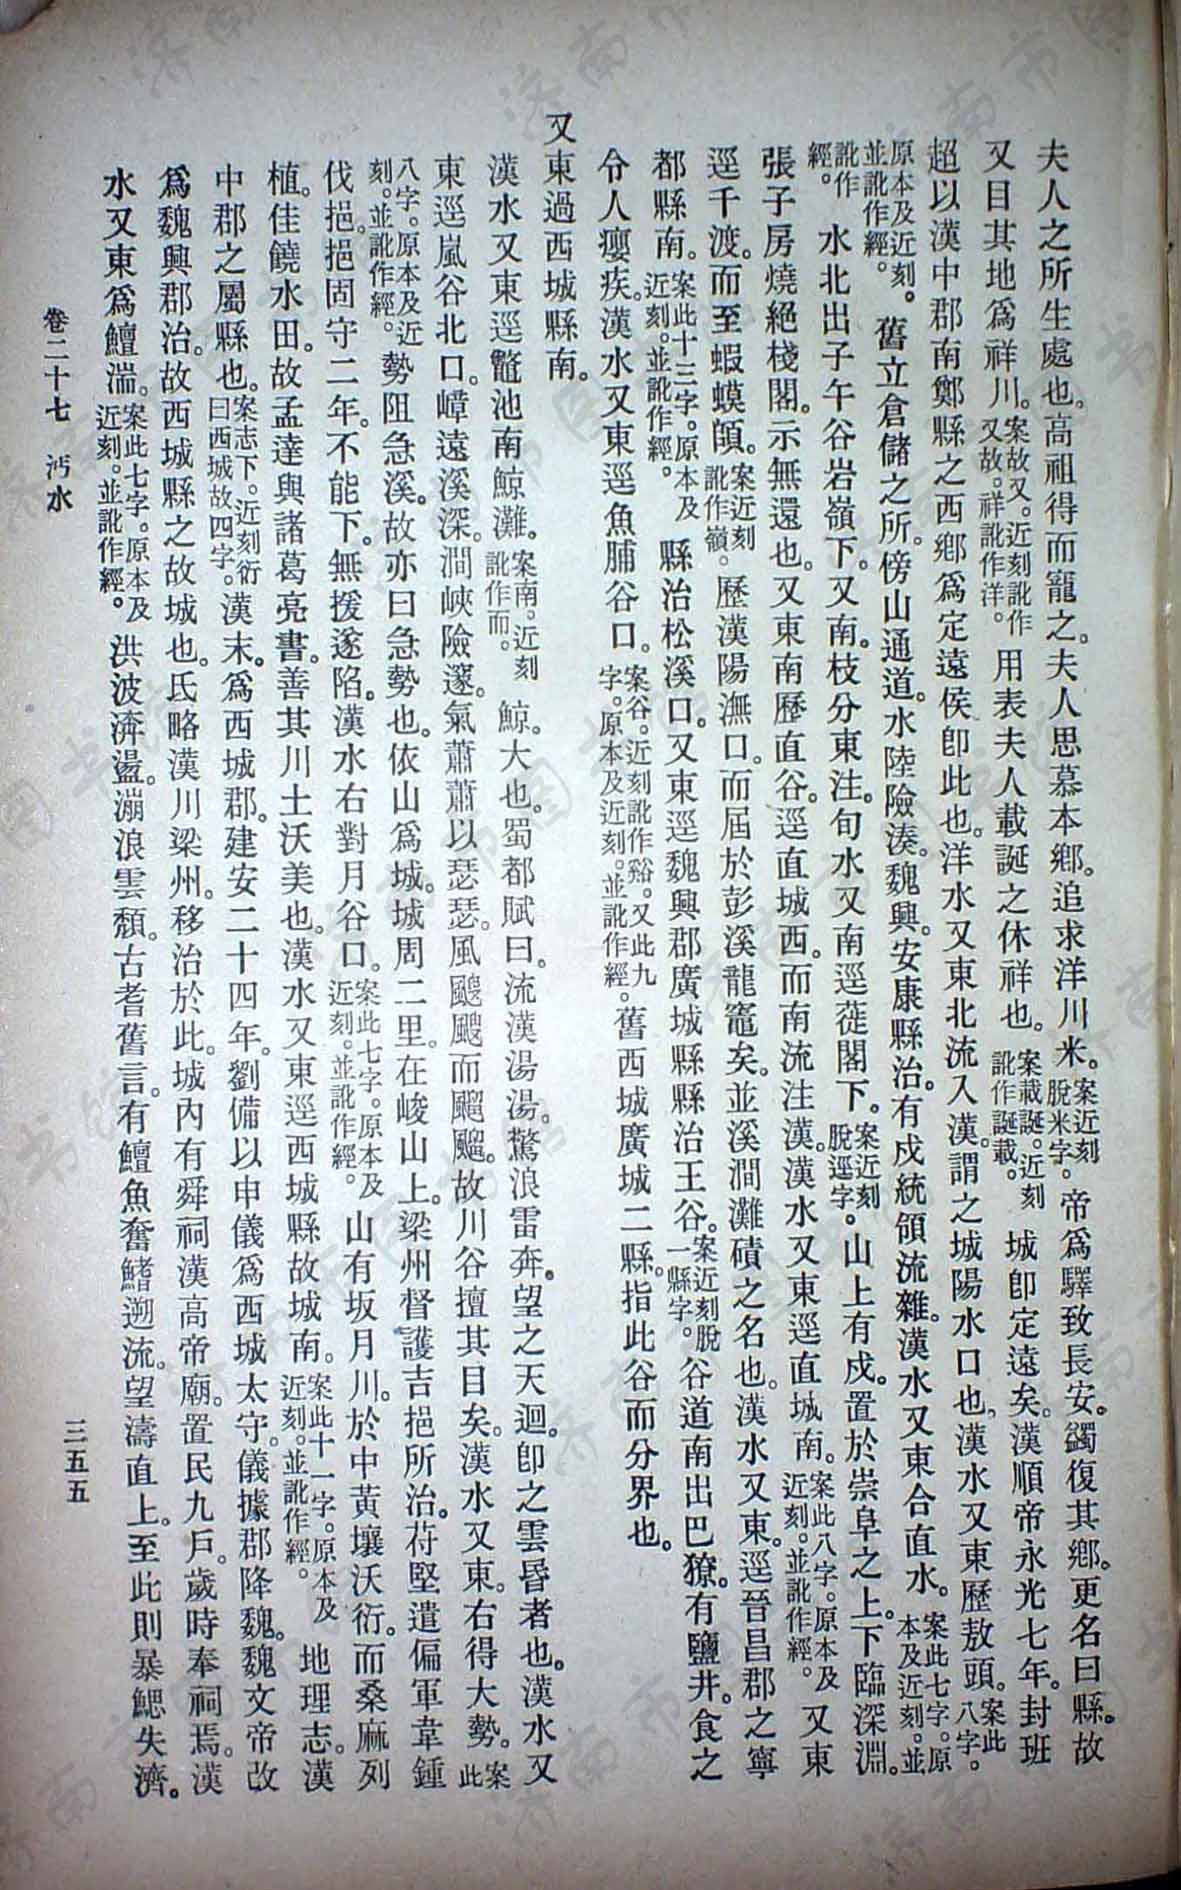 夫人之所生處也。高祖得而寵之。夫人思慕本鄉。追求洋川米。案近刻脫米字。帝爲驛致長安。蠲復其鄉。更名曰縣。故
又目其地爲祥川。案故又。近刻訛作又故。祥訛作洋。用表夫人載誕之休祥也。案載誕。近刻訛作誕載。城卽定遠矣。漢順帝永光七年。封班
超以漢中郡南鄭縣之西鄉爲定遠侯卽此也。洋水又東北流入漢。謂之城陽水口也。漢水又東歷敖頭。案此八字。
原本及近刻。並訛作經。舊立倉儲之所。傍山通道。水陸險湊。魏興。安康縣治。有戍統領流雜。漢水又東合直水。案此七字。原本及近刻。並
訛作經。水北出子午谷岩嶺下。又南。枝分東注。旬水又南逕蓰閣下。案近刻脫逕字。山上有戍。置於崇阜之上。下臨深淵。
張子房燒絕棧閣。示無還也。又東南歷直谷。逕直城西。而南流注漢。漢水又東逕直城南。案此八字。原本及近刻。並訛作經。又東
逕千渡。而至蝦蟆頧。案近刻訛作嶺。歷漢陽潕口。而屆於彭溪龍竈矣。並溪澗灘磧之名也。漢水又東。逕晉昌郡之寧
都縣南。案此十三字。原本及近刻。並訛作經。縣治松溪口。又東逕魏興郡廣城縣縣治王谷。案近刻脫一縣字。谷道南出巴獠。有鹽井。食之
令人癭疾。漢水又東逕魚脯谷口。案谷。近刻訛作谿。又此九字。原本及近刻。並訛作經。舊西城廣城二縣。指此谷而分界也。
又東過西城縣南。
漢水又東逕鼈池南鯨灘。案南。近刻訛作而。鯨。大也。蜀都賦曰。流漢湯湯。驚浪雷奔。望之天迴。卽之雲昏者也。漢水又
東逕嵐谷北口。嶂遠溪深。澗峽險邃。氣蕭蕭以瑟瑟。風颼颼而飀飀。故川谷擅其目矣。漢水又東。右得大勢。案此
八字。原本及近刻。並訛作經。勢阻急溪。故亦曰急勢也。依山爲城。城周二里。在峻山上。梁州督護吉挹所治。苻堅遣偏軍韋鍾
伐挹。挹固守二年。不能下。無援遂陷。漢水右對月谷口。案此七字。原本及近刻。並訛作經。山有坂月川。於中黃壤沃衍。而桑麻列
植。佳饒水田。故孟達與諸葛亮書。善其川土沃美也。漢水又東逕西城縣故城南。案此十一字。原本及近刻。並訛作經。地理志。漢
中郡之屬縣也。案志下。近刻衍曰西城故四字。漢末。爲西城郡。建安二十四年。劉備以申儀爲西城太守。儀據郡降魏。魏文帝改
爲魏興郡治。故西城縣之故城也。氐略漢川梁州。移治於此。城內有舜祠漢高帝廟。置民九戶。歲時奉祠焉。漢
水又東爲鱣湍。案此七字。原本及近刻。並訛作經。洪波渀盪。漰浪雲頹。古耆舊言。有鱣魚奮鰭遡流。望濤直上。至此則暴鰓失濟。
卷二十七 沔水
三五五